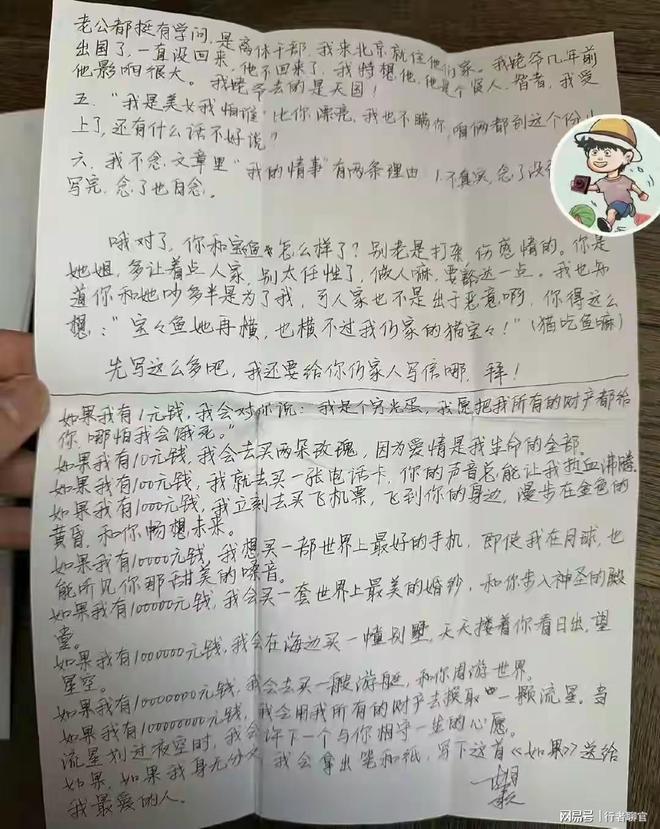 老公都挺有学问,是离休干部,我来北京就住他们家。我姥爷几年前
出国了,一直没回来,他不回来了,我特想他,他是个好人,智者,我受
他影响很大。我姥爷去的是天国!
五."我是美女我怕谁"比你漂亮,我也不瞒你,咱俩都到这个份儿
上了,还有什么话不好说"
六.我不念文章里"我的情事"有两条理由 1.不真实,念了没
写完,念了也白念。
哦对了,你和宝鱼怎么样了?别老是打架,伤感情的。你是
她姐,多让着点人家,别太任性了,做人嘛,要豁达一点。我也知
道你和她吵多半是为了我,可人家也不是出于恶意啊,你得这么
想:"宝鱼她再横,也横不过我们家的猫宝宝!"(猫吃鱼嘛)
先写这么多吧,我还要给你们家人写信哪,拜!
如果我有1元钱,我会对你说:我是个穷光蛋,我愿把我所有的财产都给
你,哪怕我会饿死。"
如果我有10元钱,我会去买两朵玫瑰,因为爱情是我生命的全部。
如果我有100元钱,我就去买一张电话卡,你的声音总能让我热血沸腾。
如果我有1000元钱,我立刻去买飞机票,飞到你的身边,漫步在金色的
黄昏,和你畅想未来。
如果我有10000元钱,我想买一部世界上最好的手机,即使我在月球,也
能听见你那甜美的嗓音。
如果我有100000元钱,我会买一套世界上最美的婚纱,和你步入神圣的殿
堂。
如果我有1000000元钱,我会在海边买一幢别墅,天天搂着你看日出,望
星空。
如果我有10000000元钱,我会去买一艘游艇,和你周游世界。
如果我有100000000元钱,我会用我所有的财产去换取一颗流星。当
流星划过夜空时,我会许下一个与你相守一生的心愿。
如果,如果我身无分文,我会拿出笔和纸,写下这首《如果》送给
我最爱的人。
网易号 | 行者聊官